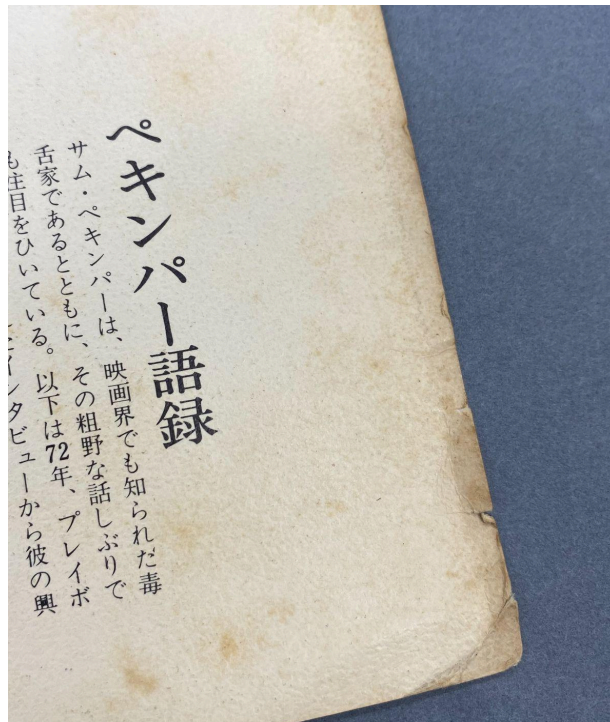 ペキンパー語録
サム・ペキンパーは、映画界でも知られた毒
舌家であるとともに、その粗野な話しぶりで
も注目をひいている。以下は72年、プレイボ
インタビューから彼の興